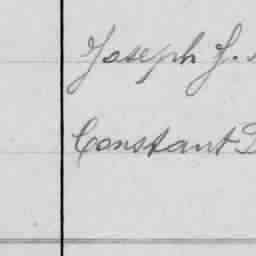 Joseph J.
Constant